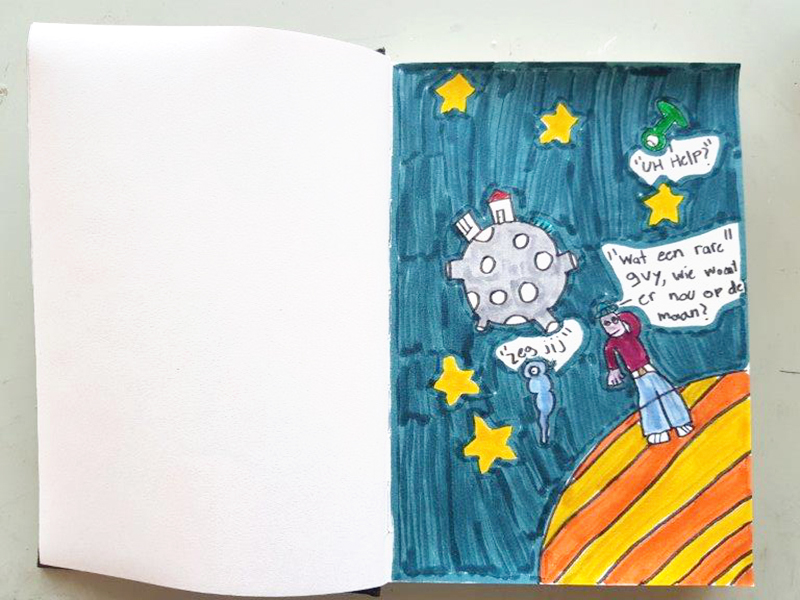 "UH HELP?"
"wat een rare"
guy, wie woont
er nou op de
maan?
"zeg jij"